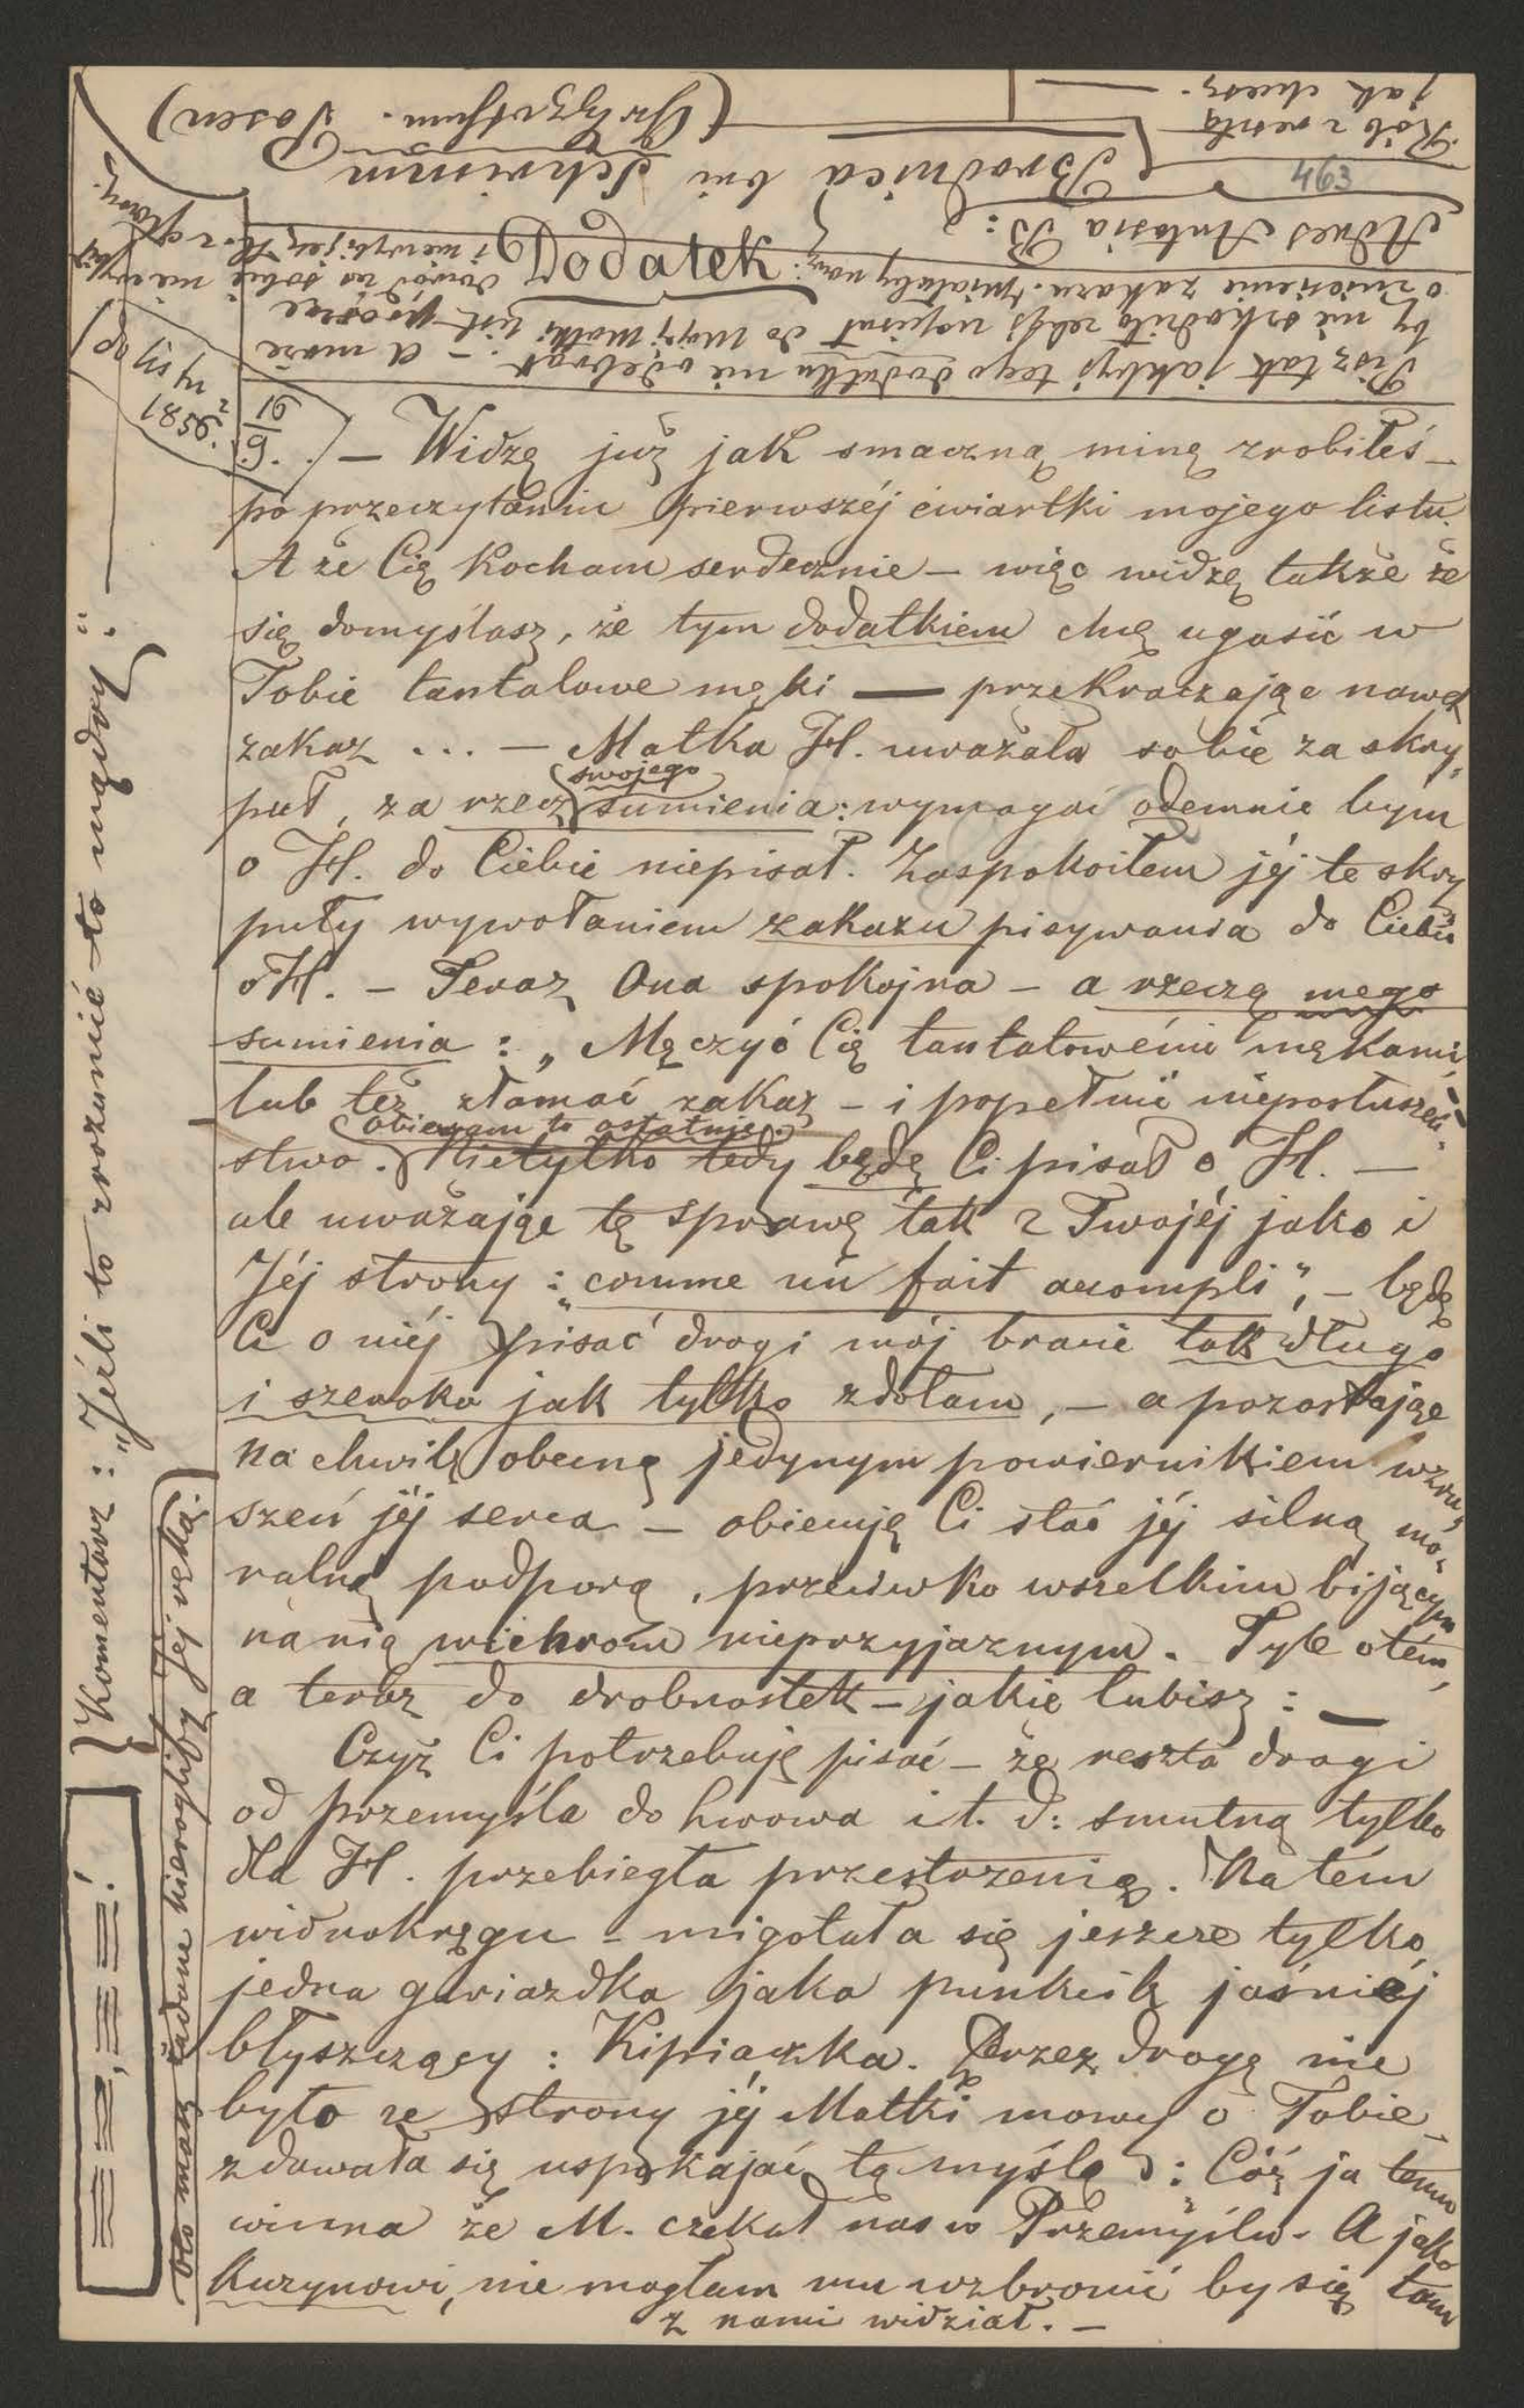 463
Rób z resztą
jak chcesz.
Adres Antosia B:
Brodnica bei Schrimm
(Grhzgthum. Posen)
Pisz tak jakbyś tego dodatku nie odebrał. – A może
by nie szkodziło żebyś napisał do mojej Matki list prosząc
o zniesienie zakazu.
Dodatek
– Widzę już jak smaczną minę zrobiłeś –
po przeczytaniu pierwszéj ćwiartki mojego listu.
A że Cię Kocham serdecznie – więc widzę także że
się domyślasz, że tym dodatkiem chcę ugasić w
Tobie tantalowe męki — przekraczając nawet
zakaz ... – Matka H. uważała sobie za skry„
puł, za rzecz swojego sumienia: wymagać odemnie bym
o H. do Ciebie niepisał. Zaspokoiłem jéj te skry
puły wywołaniem zakazu pisywania do Ciebie
o H. – Teraz Ona spokojna – a rzeczą mego
sumienia : „Męczyć Cię tantalowémi mękami,
lub też złamać zakaz – i popełnić nieposłuszeń„
stwo. (obieram to ostatnie.) Nietylko tedy będę Ci pisał o H. —
ale uważając tę sprawę tak z Twojéj jako i
Jéj strony : „comme un fait acompli", – będę
Ci o niéj pisać drogi mój bracie tak długo
i szeroko jak tylko zdołam, – a pozostając
na chwilę obecną jedynym powiernikiem wzru„
szeń jéj serca – obiecuję Ci stać jéj silną mo„
ralną podporą, przeciwko wszelkim bijącym
na nią wichrom nieprzyjaznym. Tyle o tém,
a teraz do drobnostek – jakie lubisz : —
Czyż Ci potrzebuję pisać – że reszta drogi
od Przemyśla do Lwowa i t. d: smutną tylko
dla H. przebiegła przestrzenią. Na tém
widnokręgu – migotała się jeszcze tylko
jedna gwiazdka jako punkcik jaśniéj
błyszczący : Kipiaczka. Przez drogę nie
było ze strony jéj Matki mowy o Tobie –
zdawała się uspokajać tą myślą : „Cóż ja temu
winna że M. czekał nas w Przemyślu. A jako
Kuzynowi, nie mogłam mu wzbronić by się tam
z nami widział. –
Komentarz : „Jeśli to zrozumieć – to mądry" : —
Oto masz żadne hieroglify Jéj ręką.